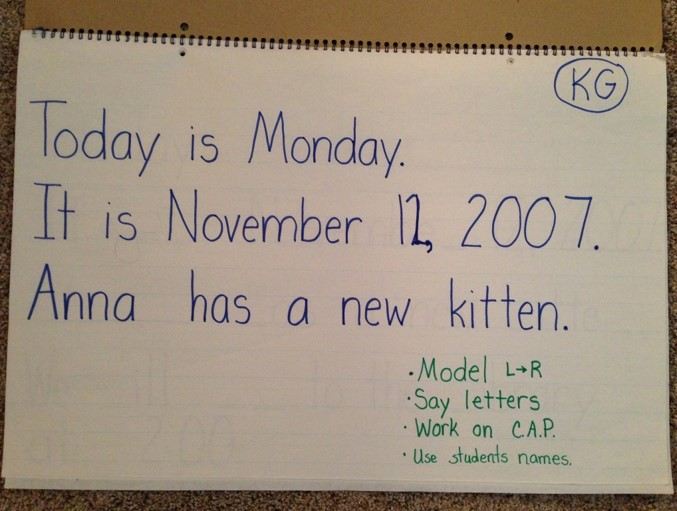 KG
Today is Monday.
It is November 12, 2007.
Anna has a new kitten.
· Model L→R
· Say letters
· Work on C.A.P.
· Use students names.